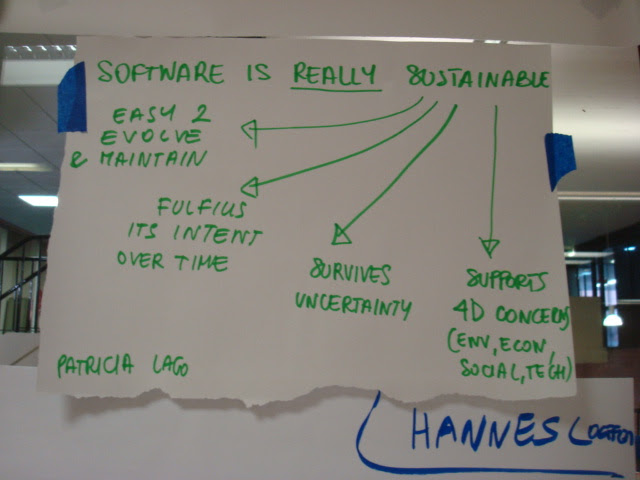 SOFTWARE IS REALLY SUSTAINABLE
EASY 2
EVOLVE
& MAINTAIN
FULFILLS
ITS INTENT
OVER TIME
SURVIVES
UNCERTAINTY
SUPPORTS
4D CONCERNS
(ENV, ECON,
SOCIAL, TECH)
PATRICIA LAGO
HANNES